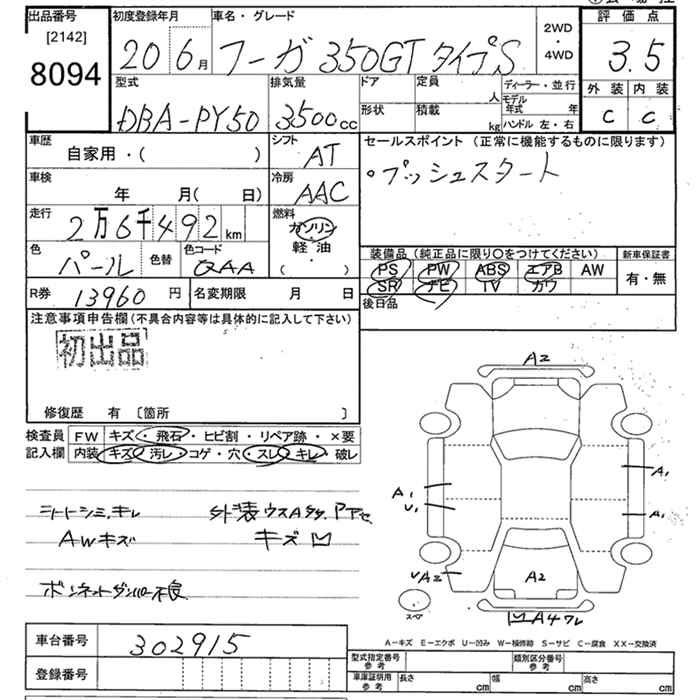 出品番号 [2142] 8094
初度登録年月 20 6月
車名・グレード フーガ 350GT タイプS
2WD・4WD
評価点 3.5
外装 C 内装 C
型式 DBA-PY50
排気量 3500cc
ドア
形状
定員 人
積載 kg
ディーラー・並行
モデル年式 年
ハンドル 左・右
車歴 自家用・( )
シフト AT
車検 年 月(日)
冷房 AAC
走行 2万6千492km
燃料 ガソリン 軽油 ( )
色 パール 色替
色コード QAA
R券 13960円
名変期限 月 日
セールスポイント (正常に機能するものに限ります)
・プッシュスタート
装備品 (純正品に限り○をつけてください)
PS PW ABS エアB AW
SR ナビ TV カワ
新車保証書 有・無
後日品
注意事項申告欄(不具合内容等は具体的に記入して下さい)
初出品
修復歴 有 〔箇所 〕
検査員記入欄
FW キズ・飛石・ヒビ割・リペア跡・×要
内装 キズ・汚レ・コゲ・穴・スレ・キレ・破レ
シートシミ、キレ
AWキズ
外装ウスA
キズ凹
ボンネットダンパー不良
A2
A1
U1
A1
A1
UA2
A2
スペア
凹A4ワレ
A-キズ E-エクボ U-凹み W-修理跡 S-サビ C-腐食 XX-交換済
車台番号 302915
登録番号
型式指定番号 参考
類別区分番号 参考
車庫証明用 参考 長さ cm 幅 cm 高さ cm